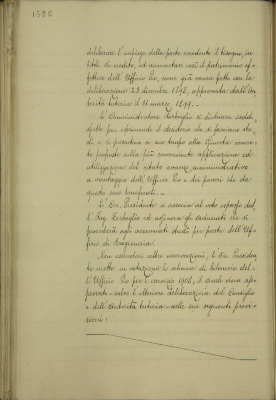 1526
deliberare l'impiego della parte eccedente il bisogno, in
titoli di credito, ed aumentare così il patrimonio ef-
fettivo dell'Ufficio Pio, come già venne fatto con la
deliberazione 23 dicembre 1898, approvata dall'Au-
torità tutoria il 11 marzo 1899. -
L'Amministratore Harbaglio si dichiara soddi-
sfatto pur esprimendo il desiderio che si facciano stu-
di e si presentino a suo tempo alla Giunta concre-
te proposte sulla più conveniente applicazione ed
utilizzazione del citato avanzo amministrativo
a vantaggio dell'Ufficio Pio e dei poveri che da
questo sono beneficati. -
L'On. Presidente si associa al voto espresso dal
l'Ing. Harbaglio ed assicura gli Adunati che si
procederà agli accennati studi per parte dell'Uf-
ficio di Ragioneria.
Non essendovi altre osservazioni, l'On. Presiden-
te mette in votazione lo schema di bilancio del-
l'Ufficio Pio per l'esercizio 1905, il quale viene ap-
provato - salvo l'ulteriore deliberazione del Consiglio
e dell'Autorità tutoria - nelle sue seguenti previ-
sioni: